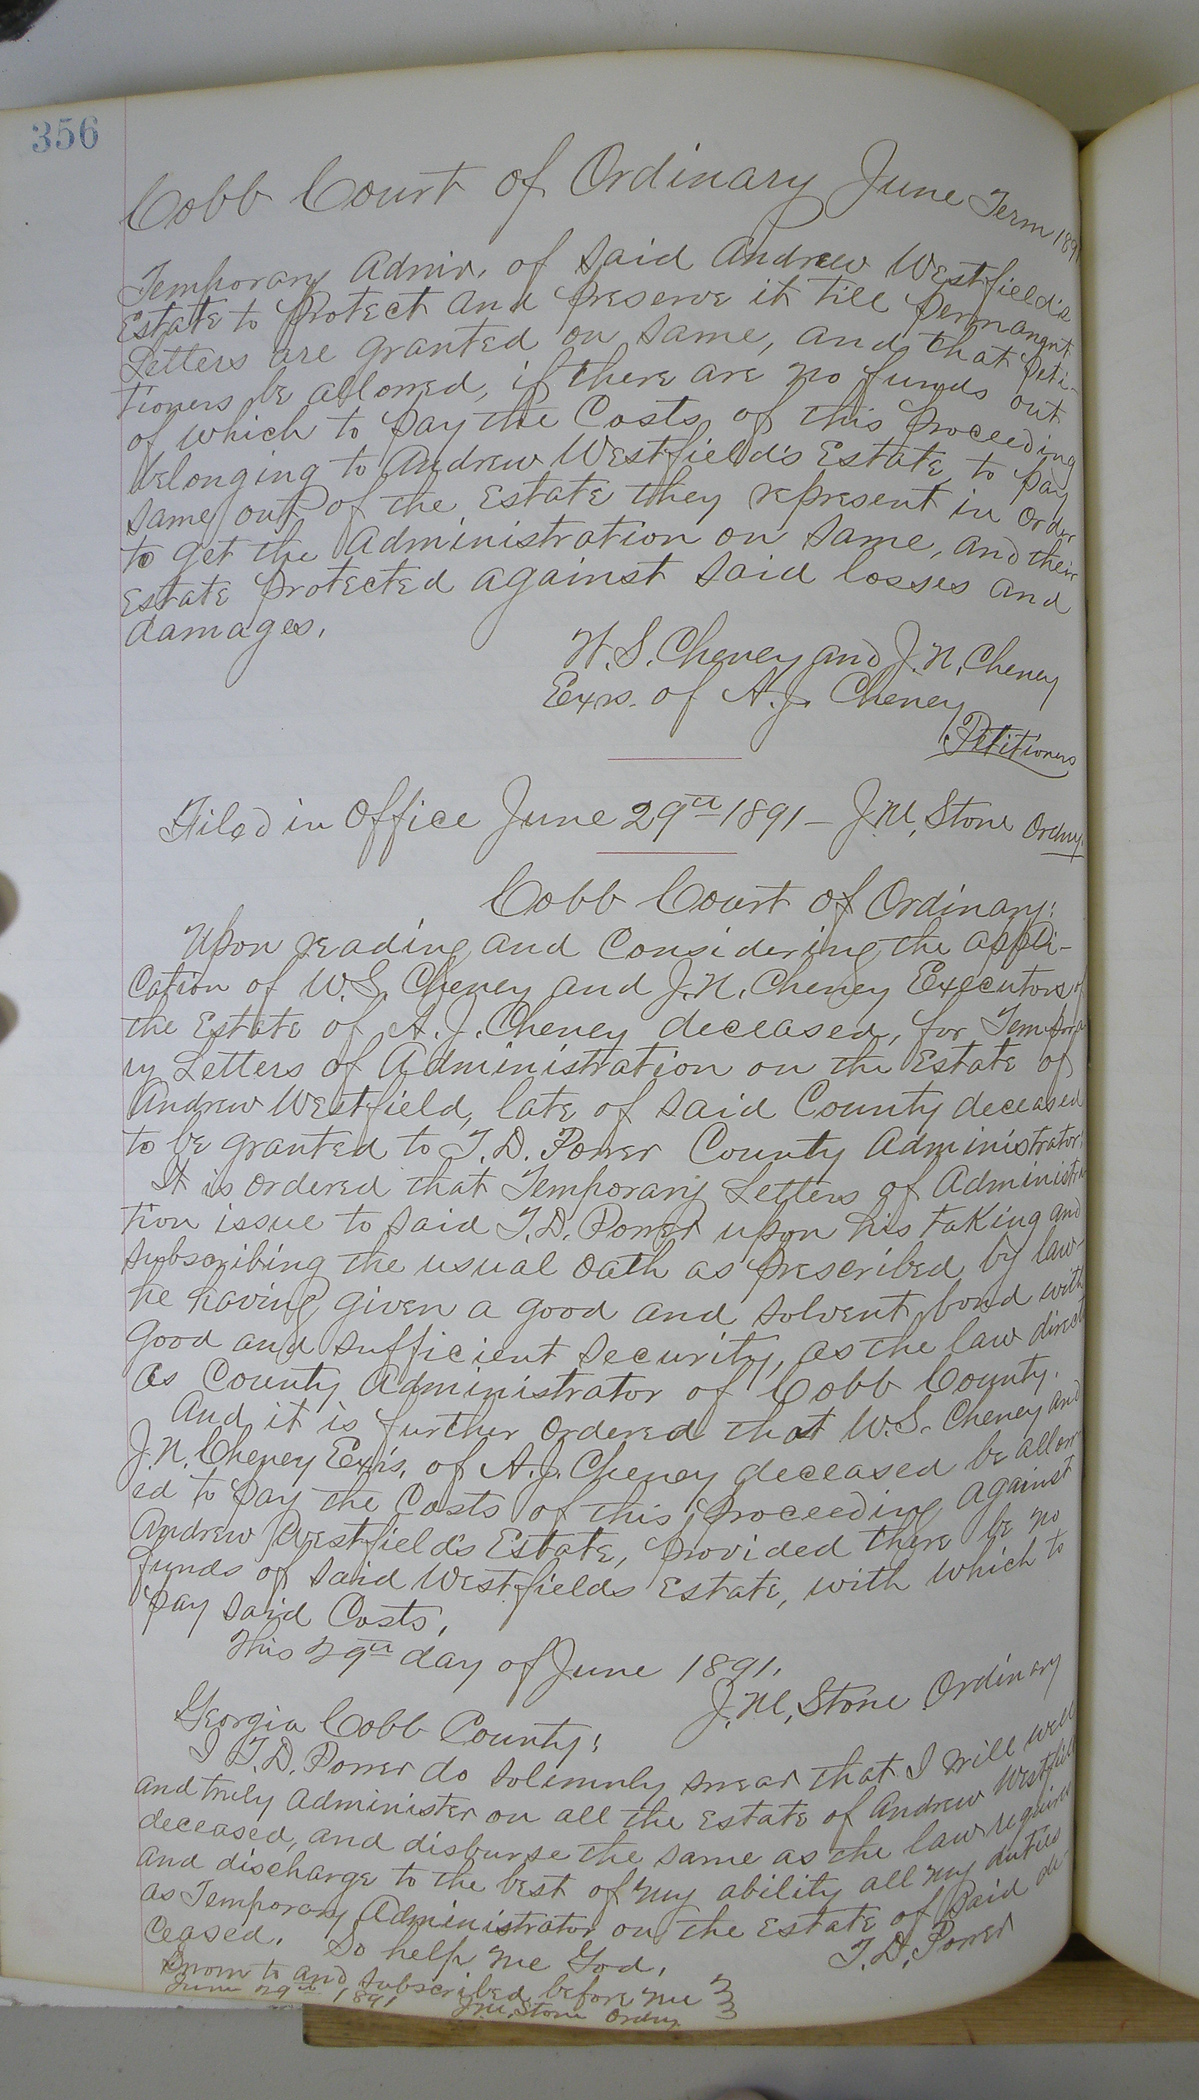 356
Cobb Court of Ordinary June Term 1891
Temporary Admr. of said Andrew Westfield's
Estate to protect and preserve it till permanent
Letters are granted on same, and that Peti-
tioners be allowed, if there are no funds out
of which to pay the Costs of this proceeding
belonging to Andrew Westfield's Estate to pay
same out of the Estate they represent in order
to get the Administration on same, and their
Estate protected against said losses and
damages.
W. S. Cheney and J. N. Cheney
Exrs. of A. J. Cheney
Petitioners
Filed in Office June 29th 1891 - J. M. Stone Ordny.
Cobb Court of Ordinary:
Upon reading and Considering the appli-
cation of W. S. Cheney and J. N. Cheney Executors of
the Estate of A. J. Cheney deceased, for Tempora
ry Letters of Administration on the Estate of
Andrew Westfield, late of said County deceased
to be granted to T. D. Power County Administrator:
It is ordered that Temporary Letters of Administra
tion issue to said T. D. Power upon his taking and
subscribing the usual oath as prescribed by law
he having given a good and solvent bond with
good and sufficient security, as the law directs
as County Administrator of Cobb County.
And it is further ordered that W. S. Cheney and
J. N. Cheney Exrs. of A. J. Cheney deceased be allow
ed to pay the Costs of this proceeding against
Andrew Westfield's Estate, provided there be no
funds of said Westfields Estate, with which to
pay said Costs.
This 29th day of June 1891.
J. M. Stone Ordinary
Georgia Cobb County:
I T. D. Power do solemnly swear that I will well
and truly administer on all the Estate of Andrew Westfield
deceased, and disburse the same as the law requires
and discharge to the best of my ability all my duties
as Temporary Administrator on the Estate of said de-
ceased. So help me God.
T. D. Power
Sworn to and subscribed before me
June 29th 1891 J. M. Stone Ordny